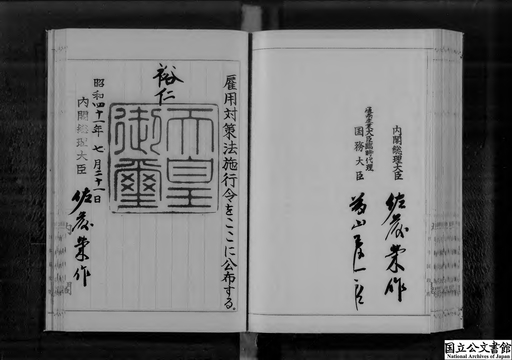 雇用対策法施行令をここに公布する。
裕仁
天皇御璽
昭和四十一年七月二十一日
内閣総理大臣
佐藤栄作
内閣総理大臣
佐藤栄作
臨時代理
国務大臣
国立公文書館
National Archives of Japan